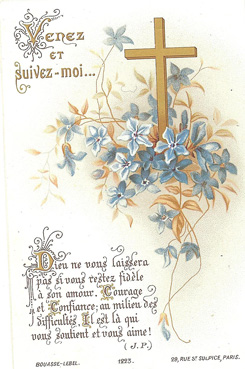 Venez
et
suivez-moi...
Dieu ne vous laissera
pas si vous restez fidèle
à son amour. Courage
et Confiance; au milieu des
difficultés, Il est là qui
vous soutient et vous aime!
(J. P.)
BOUASSE-LEBEL. 1223. 29, RUE ST SULPICE, PARIS.